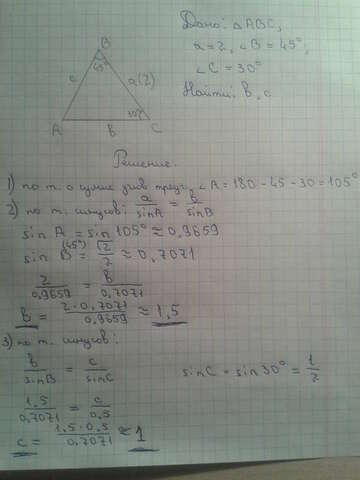 Дано: △ABC,
a=2, ∠B = 45°,
∠C = 30°
Найти: b, c.
B
45°
c
a(2)
30°
A
b
C
Решение.
1) по т. о сумме углов треуг. ∠A = 180 - 45 - 30 = 105°
2) по т. синусов: a/sinA = b/sinB
sin A = sin 105° ≈ 0,9659
sin B (45°) = √2/2 ≈ 0,7071
2/0,9659 = b/0,7071
b = 2·0,7071/0,9659 ≈ 1,5
3) по т. синусов:
b/sinB = c/sinC
sinC = sin 30° = 1/2
1,5/0,7071 = c/0,5
c = 1,5·0,5/0,7071 ≈ 1